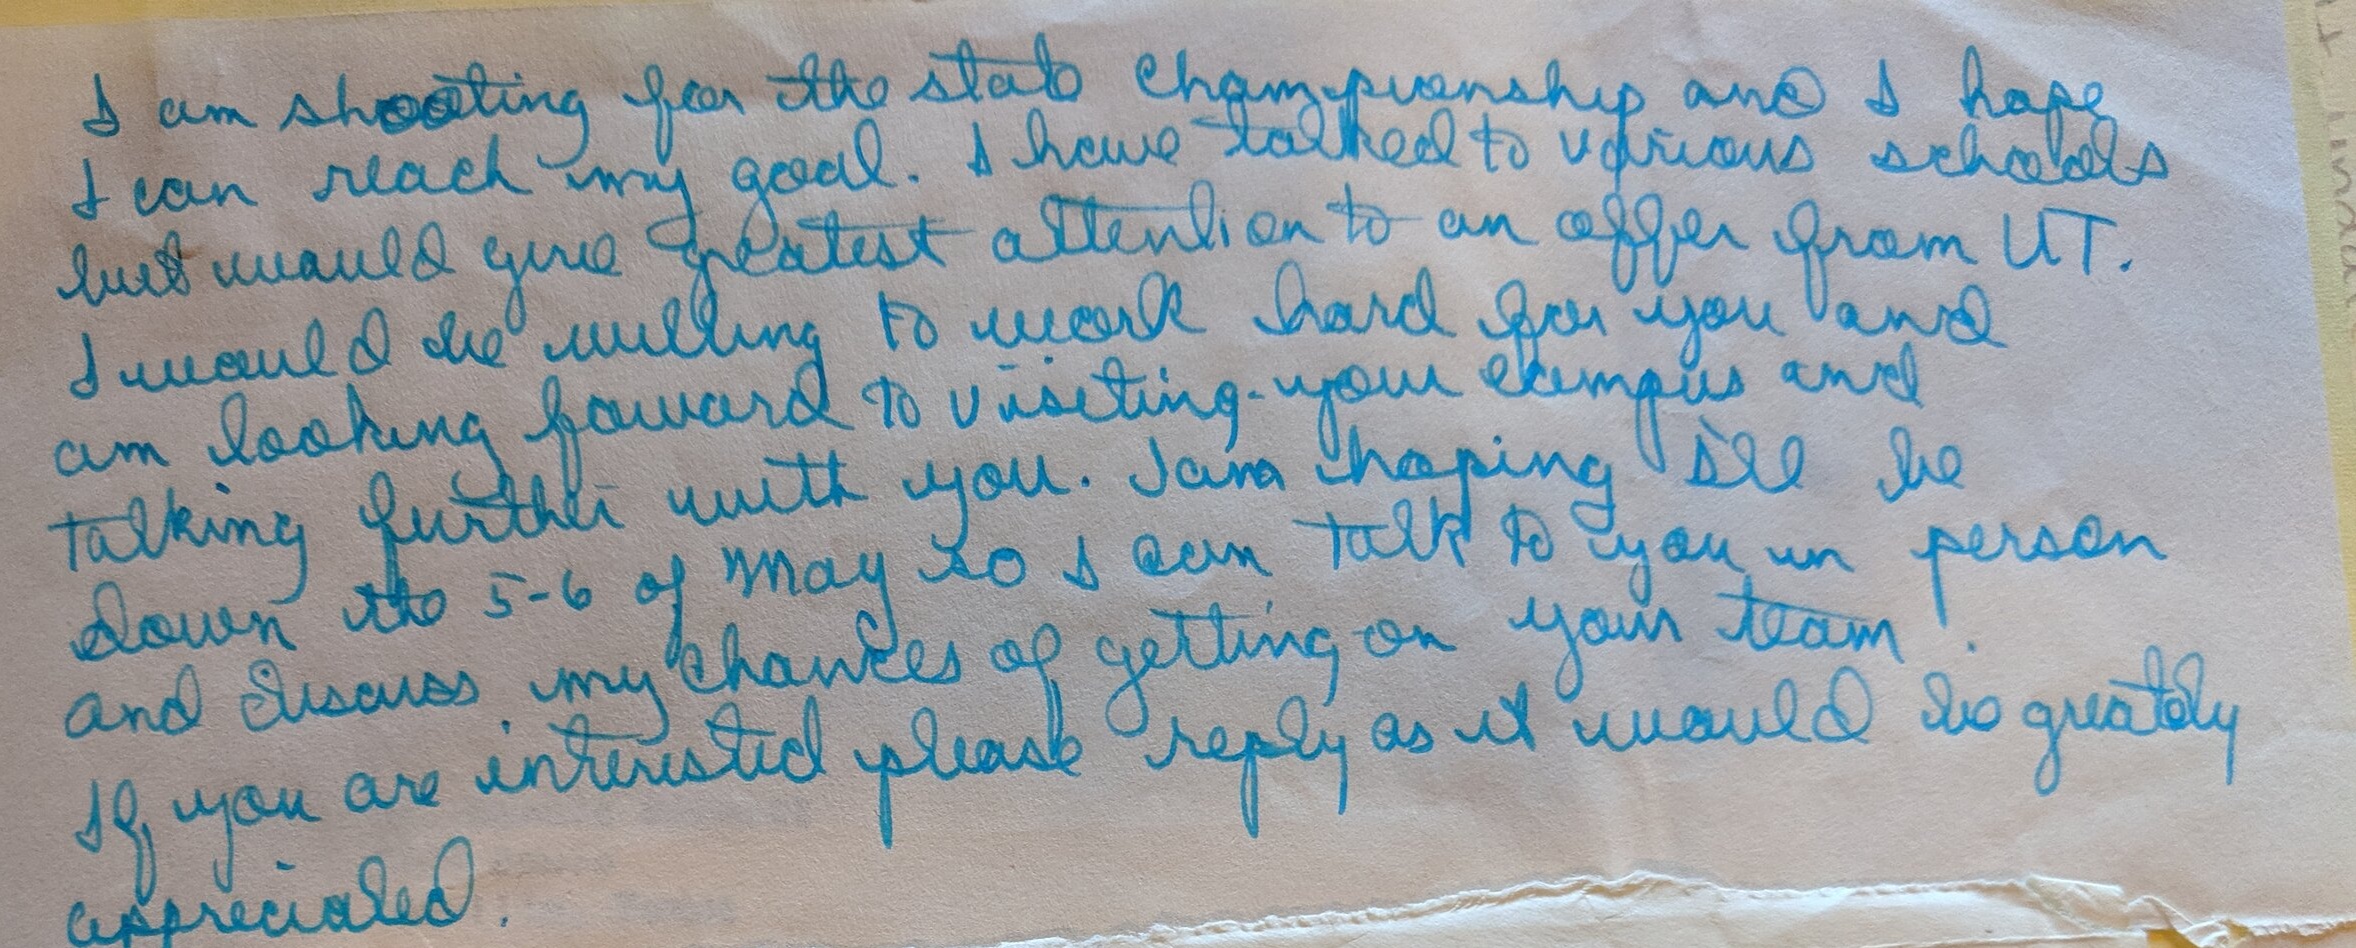 I am shooting for the state championship and I hope
I can reach my goal. I have talked to various schools
but would give greatest attention to an offer from UT.
I would be willing to work hard for you and
am looking foward to visiting your campus and
talking further with you. I am hoping I'll be
down the 5-6 of May so I can talk to you in person
and discuss my chances of getting on your team.
If you are interested please reply as it would be greatly
appreciated.